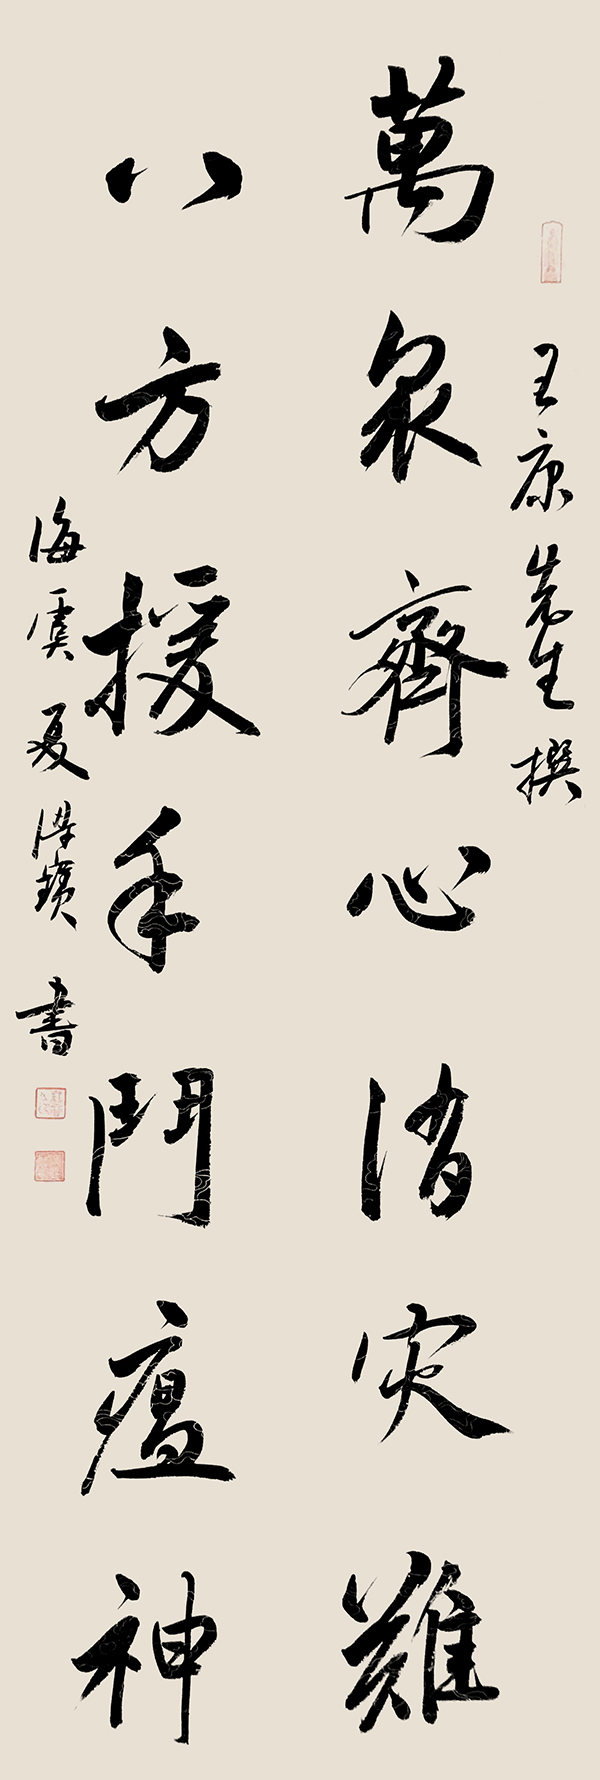 王康先生撰
萬衆齊心消灾難
八方援手鬥瘟神
海虞夏 書